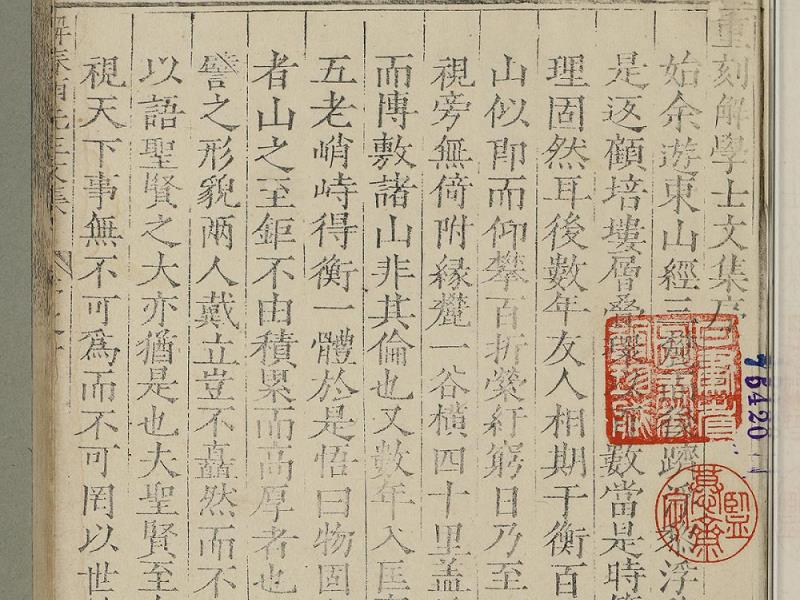 重刻解學士文集序
始余遊東山經三
是返顧培塿層疊環 數當是時
理固然耳後數年友人相期于衡百
山似即而仰攀百折縈紆窮日乃至
視旁無倚附緣麓一谷橫四十里蓋
而博敷諸山非其倫也又數年入匡
五老峭峙得衡一體於是悟曰物固
者山之至鉅不由積累而高厚者也
譬之形貌兩人戴立豈不矗然而不
以語聖賢之大亦猶是也夫聖賢至
視天下事無不可為而不可罔以世
76420